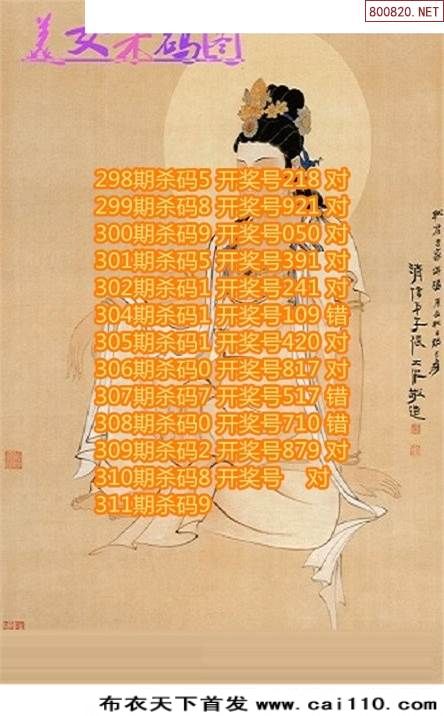 800820.NET
美女杀码图
298期杀码5 开奖号218 对
299期杀码8 开奖号921 对
300期杀码9 开奖号050 对
301期杀码5 开奖号391 对
302期杀码1 开奖号241 对
304期杀码1 开奖号109 错
305期杀码1 开奖号420 对
306期杀码0 开奖号817 对
307期杀码7 开奖号517 错
308期杀码0 开奖号710 错
309期杀码2 开奖号879 对
310期杀码8 开奖号 对
311期杀码9
布衣天下首发 www.cai110.com